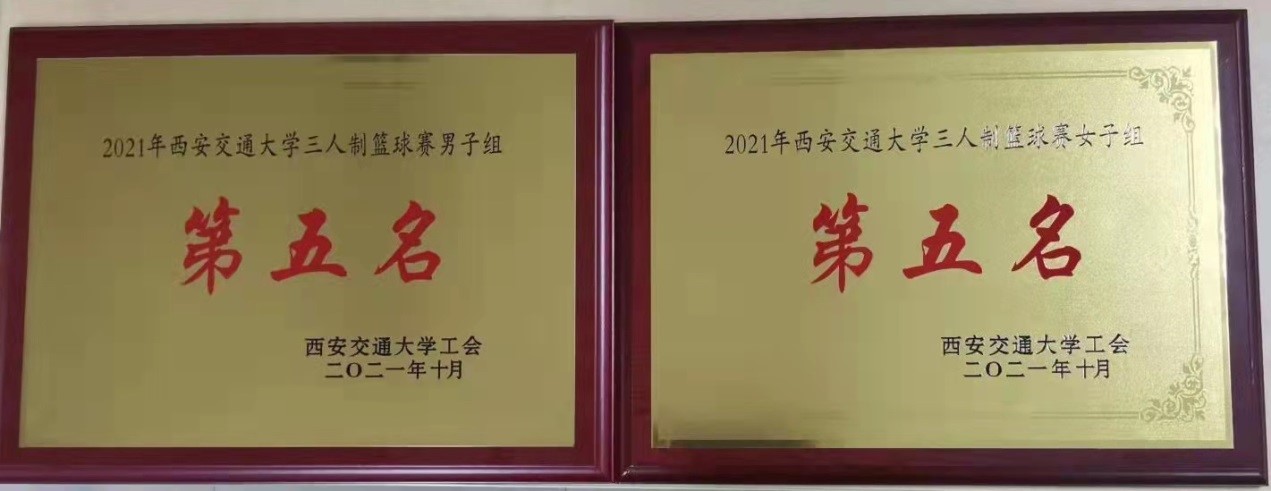 2021年西安交通大学三人制篮球赛男子组
第五名
西安交通大学工会
二〇二一年十月
2021年西安交通大学三人制篮球赛女子组
第五名
西安交通大学工会
二〇二一年十月